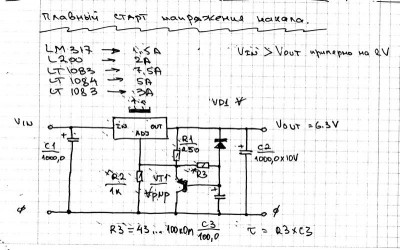 плавный старт напряжения накала.
LM317 → 1.5A
L200 → 2A
LT1083 → 7.5A
LT1084 → 5A
LT1083 → 3A
VIN > VOUT примерно на 2V
VD1
VIN
IN OUT
ADJ
VOUT = 6.3V
C1
1000,0
R1
R3
C2
1000,0x10V
R2
1K
VT1
pnp
R3 = 43... 100кОм
C3
100,0
τ = R3xC3